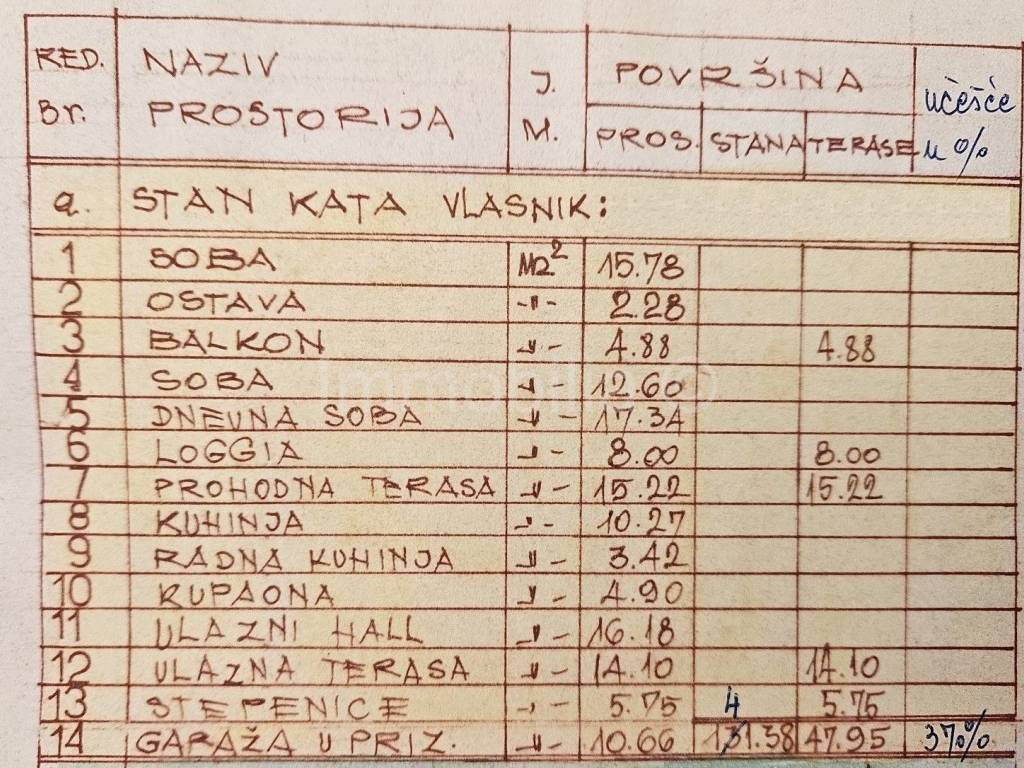 RED. Br. NAZIV PROSTORIJA J. M. POVRŠINA učešće u %
PROS. STANA TERASE
a. STAN KATA VLASNIK:
1 SOBA M2² 15.78
2 OSTAVA -"- 2.28
3 BALKON -"- 4.88 4.88
4 SOBA -"- 12.60
5 DNEVNA SOBA -"- 17.34
6 LOGGIA -"- 8.00 8.00
7 PROHODNA TERASA -"- 15.22 15.22
8 KUHINJA -"- 10.27
9 RADNA KUHINJA -"- 3.42
10 KUPAONA -"- 4.90
11 ULAZNI HALL -"- 16.18
12 ULAZNA TERASA -"- 14.10 14.10
13 STEPENICE -"- 5.75 4 5.75
14 GARAŽA U PRIZ. -"- 10.66 131.38 47.95 37%